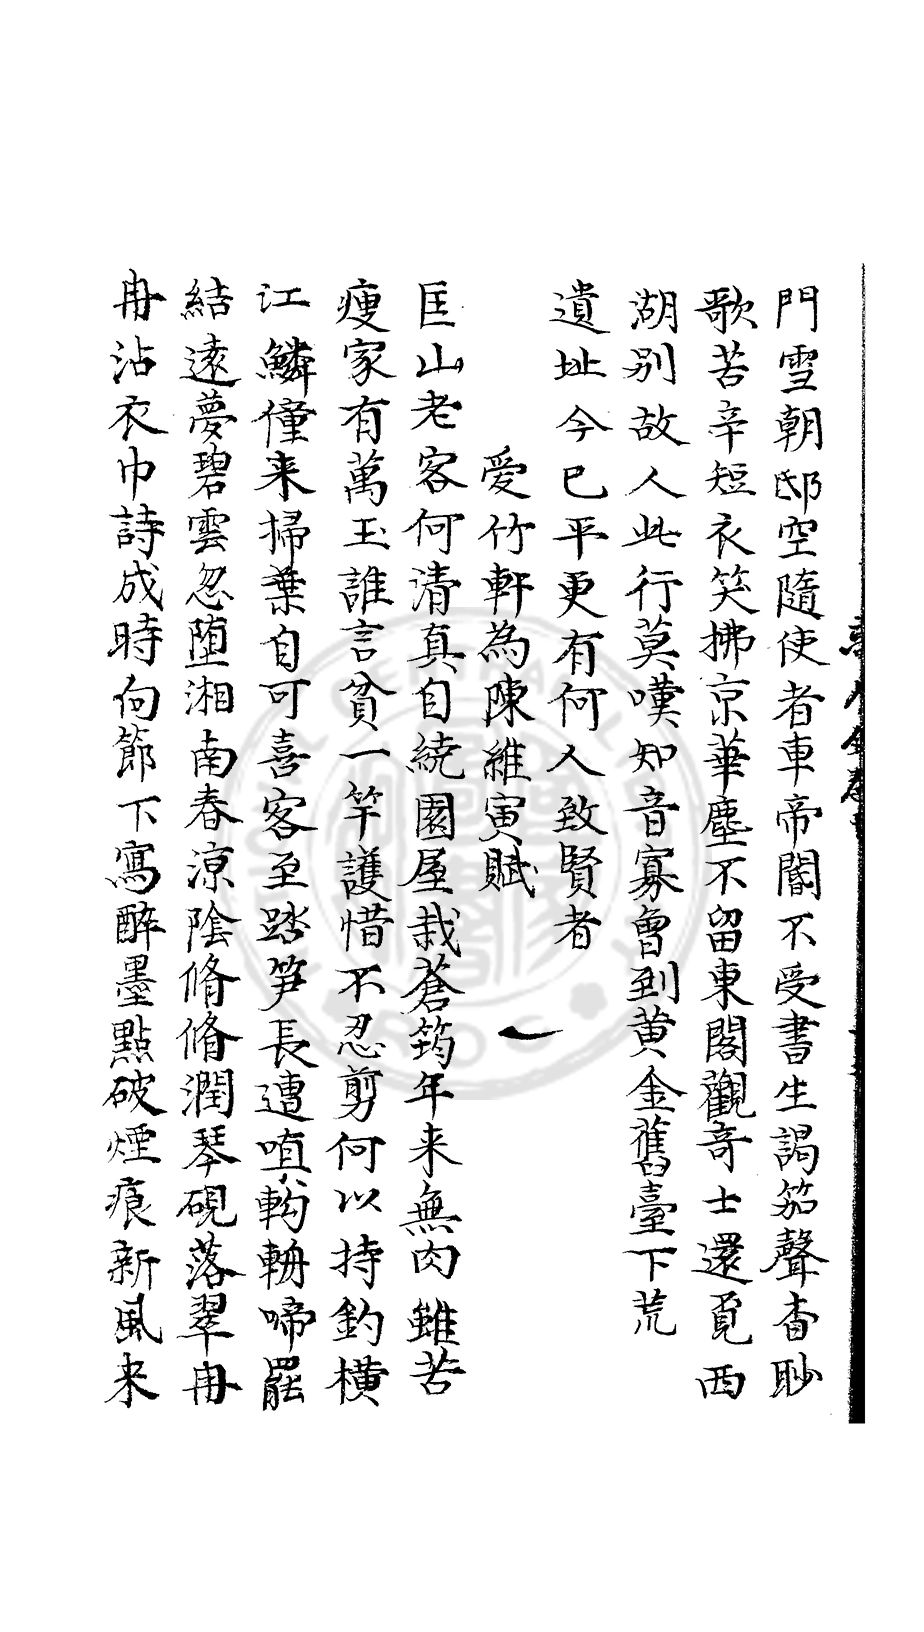 門雪朝邸空隨使者車帝閽不受書生謁笳聲杳眇
歌苦辛短衣笑拂京華塵不留東閣觀竒士還覓西
湖别故人此行莫嘆知音寡曾到黄金舊臺下荒
遺址今已平更有何人致賢者
愛竹軒為陳維寅賦
匡山老客何清真自繞園屋栽蒼筠年来無肉雖苦
瘦家有萬玉誰言貧一竿護惜不忍剪何以持釣横
江鱗僮来掃葉自可喜客至踏笋長遭嗔鞫輈啼罷
結遠夢碧雲忽墮湘南春涼陰脩脩潤琴硯落翠冉
冉沾衣巾詩成時向節下寫醉墨點破煙痕新風来